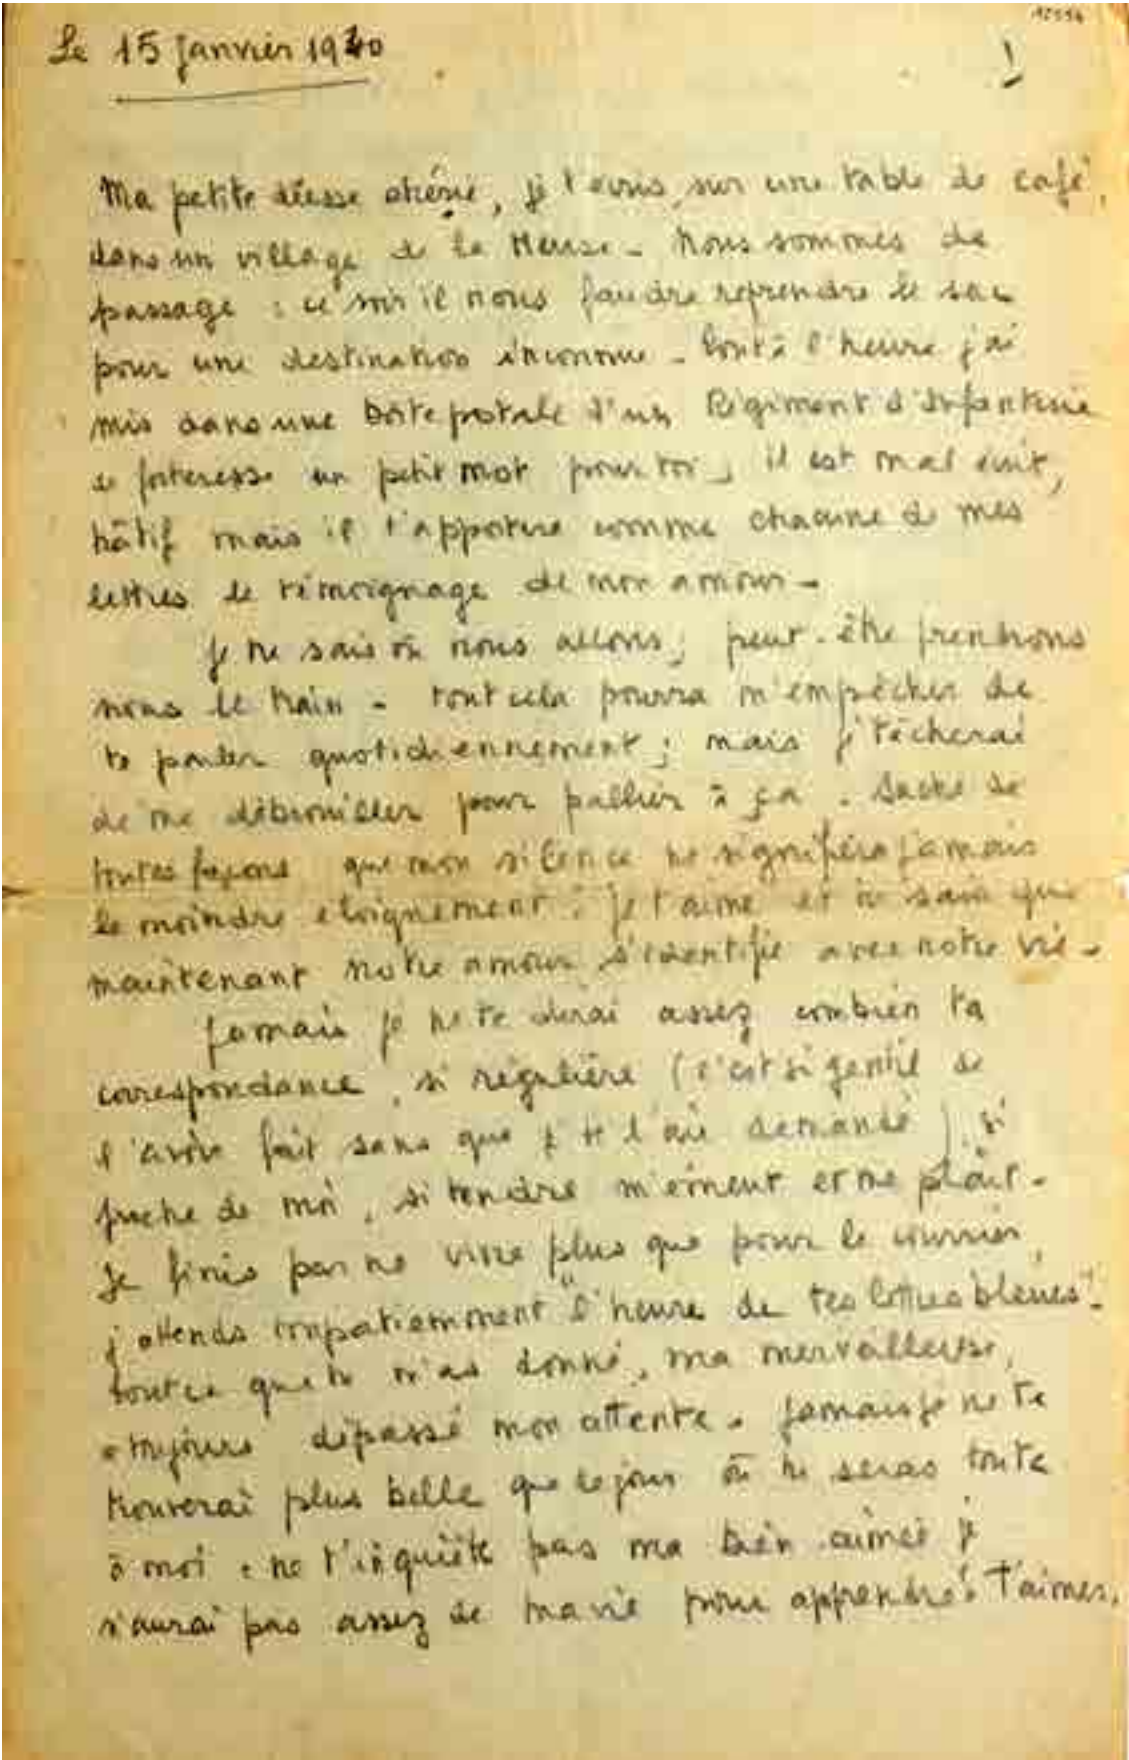 Le 15 janvier 1940
1
Ma petite déesse chérie, je t'écris sur une table de café,
dans un village de la Meuse - Nous sommes de
passage : ce soir il nous faudra reprendre le sac
pour une destination inconnue - Tout à l'heure j'ai
mis dans une boîte postale d'un Régiment d'Infanterie
de forteresse un petit mot pour toi ; il est mal écrit,
hâtif mais il t'apportera comme chacune de mes
lettres le témoignage de mon amour -
Je ne sais où nous allons ; peut-être prendrons
nous le train - tout cela pourra m'empêcher de
te parler quotidiennement ; mais je tâcherai
de me débrouiller pour pallier à ça . Sache de
toutes façons que mon silence ne signifiera jamais
le moindre éloignement : je t'aime et tu sais que
maintenant notre amour s'identifie avec notre vie -
Jamais je ne te dirai assez combien ta
correspondance , si régulière (c'est si gentil de
l'avoir fait sans que je te l'aie demandé ), si
proche de moi , si tendre m'émeut et me plaît -
Je finis par ne vivre plus que pour le courrier,
j'attends impatiemment "l'heure de tes lettres bleues" -
Tout ce que tu m'as donné, ma merveilleuse,
a toujours dépassé mon attente . Jamais je ne te
trouverai plus belle que le jour où tu seras toute
à moi : ne t'inquiète pas ma bien-aimée je
n'aurai pas assez de ma vie pour apprendre à t'aimer.